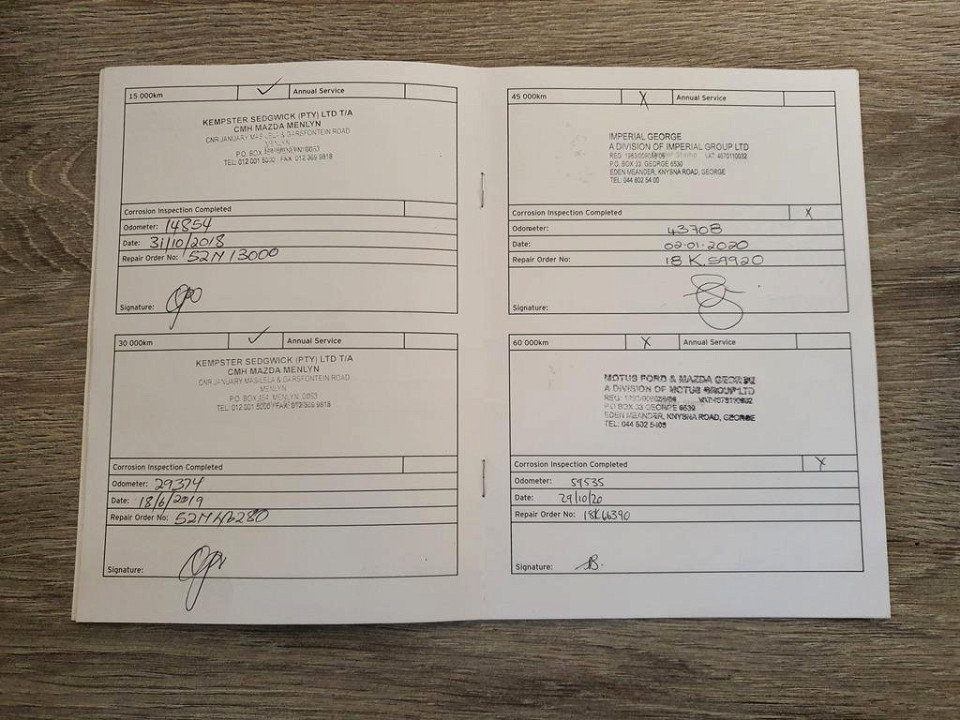 15 000km ✓ Annual Service
KEMPSTER SEDGWICK (PTY) LTD T/A
CMH MAZDA MENLYN
CNR JANUARY MASILELA & GARSFONTEIN ROAD
MENLYN
P.O. BOX MENLYN, 0063
TEL: 012 001 FAX: 012 369 9818
Corrosion Inspection Completed
Odometer: 14854
Date: 31/10/2018
Repair Order No: 52M13000
Signature:
30 000km ✓ Annual Service
KEMPSTER SEDGWICK (PTY) LTD T/A
CMH MAZDA MENLYN
CNR JANUARY MASILELA & GARSFONTEIN ROAD
MENLYN
P.O. BOX MENLYN, 0063
TEL: 012 001 FAX: 9818
Corrosion Inspection Completed
Odometer: 29374
Date: 18/6/2019
Repair Order No:
Signature:
45 000km X Annual Service
IMPERIAL GEORGE
A DIVISION OF IMPERIAL GROUP LTD
REG VAT 4675110032
P.O. BOX 33, GEORGE 6530
EDEN MEANDER, KNYSNA ROAD, GEORGE
TEL: 044 802 54 00
Corrosion Inspection Completed X
Odometer: 43708
Date: 02.01.2020
Repair Order No: 18K59920
Signature:
60 000km X Annual Service
MOTUS FORD & MAZDA GEORGE
A DIVISION OF MOTUS GROUP LTD
REG
P O BOX 33 GEORGE 6530
EDEN MEANDER, KNYSNA ROAD, GEORGE
TEL: 044 802
Corrosion Inspection Completed X
Odometer: 59535
Date: 29/10/20
Repair Order No: 18K66390
Signature: